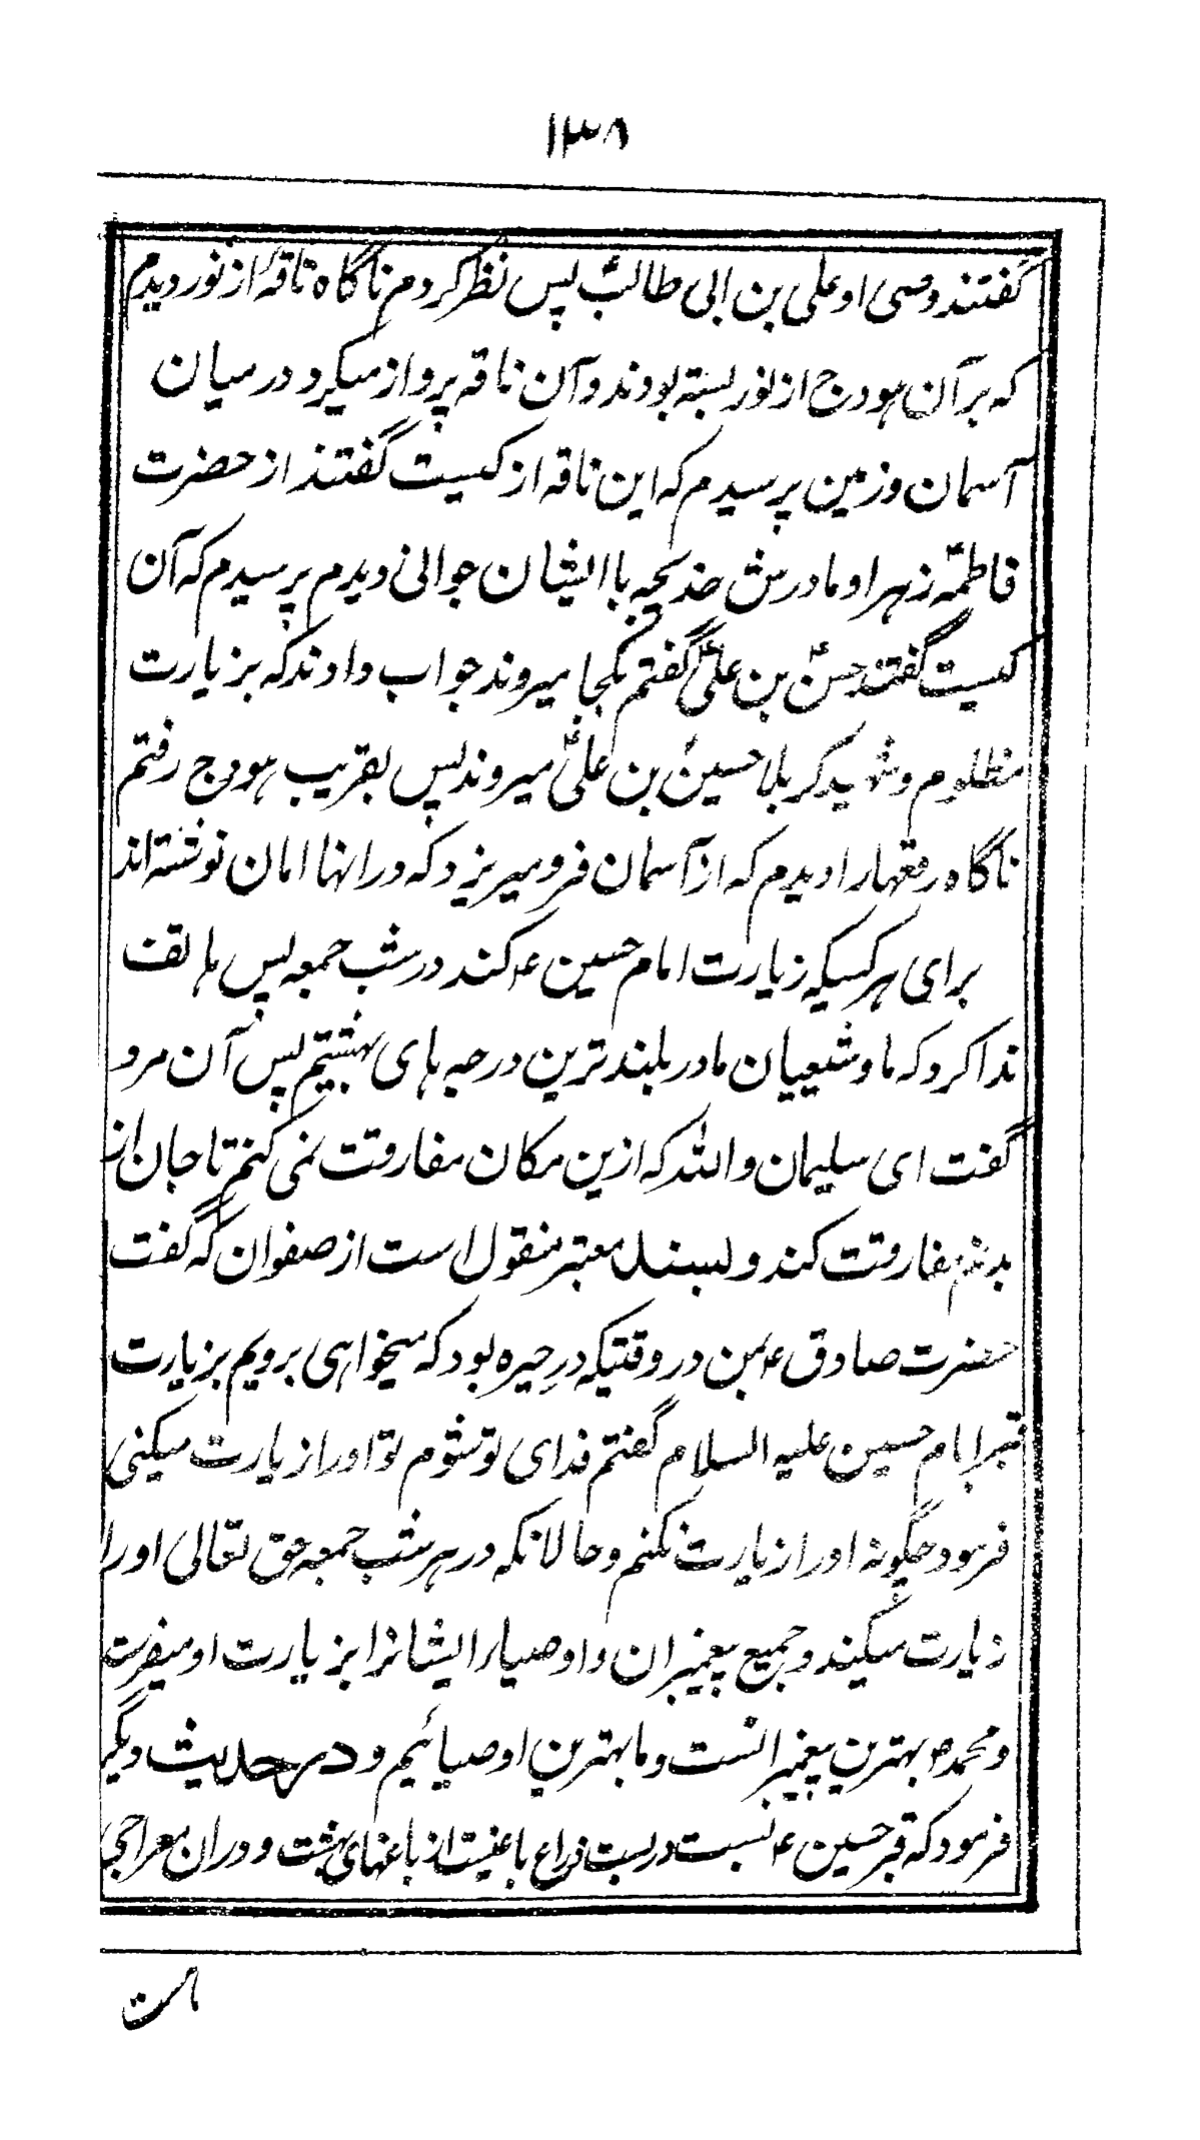 ۱۳۸
گفتند وصی او علی بن ابی طالبؑ پس نظر کردم ناگاه ناقهٔ از نور دیدم
که بر آن هودج از نور بسته بودند و آن ناقه پرواز میکرد در میان
آسمان و زمین پرسیدم که این ناقه از کیست گفتند از حضرت
فاطمهؑ زهرا و مادرش خدیجه با ایشان جوانی دیدم پرسیدم که آن
کیست گفتند حسنؑ بن علیؑ گفتم بکجا میروند جواب دادند که بزیارت
مظلوم و شهید کربلا حسینؑ بن علیؑ میروند پس بقریب هودج رفتم
ناگاه رقعها را دیدم که از آسمان فرو میریزد که در انها امان نوشته اند
برای هر کسیکه زیارت امام حسین ع کند در شب جمعه پس هاتف
ندا کرد که ما و شیعیان ما در بلند ترین درجه های بهشتیم پس آن مرد
گفت ای سلیمان و الله که ازین مکان مفارقت نمی کنم تا جان از
بدنم مفارقت کند و بسند معتبر منقول است از صفوان که گفت
حضرت صادق ع بمن در وقتیکه در حیره بود که میخواهی برویم بزیارت
قبر امام حسین علیه السلام گفتم فدای تو شوم تو او را زیارت میکنی
فرمود چگونه او را زیارت نکنم و حالانکه در هر شب جمعه حق تعالی او را
زیارت میکند و جمیع پیغمبران و اوصیا را ایشانرا بزیارت او میفرستد
و محمد ص بهترین پیغمبرانست و ما بهترین اوصیائیم و در حدیث دیگر
فرمود که قبر حسین ع بیست در بیست ذراع باغیست از باغهای بهشت و در ان معراجی
است